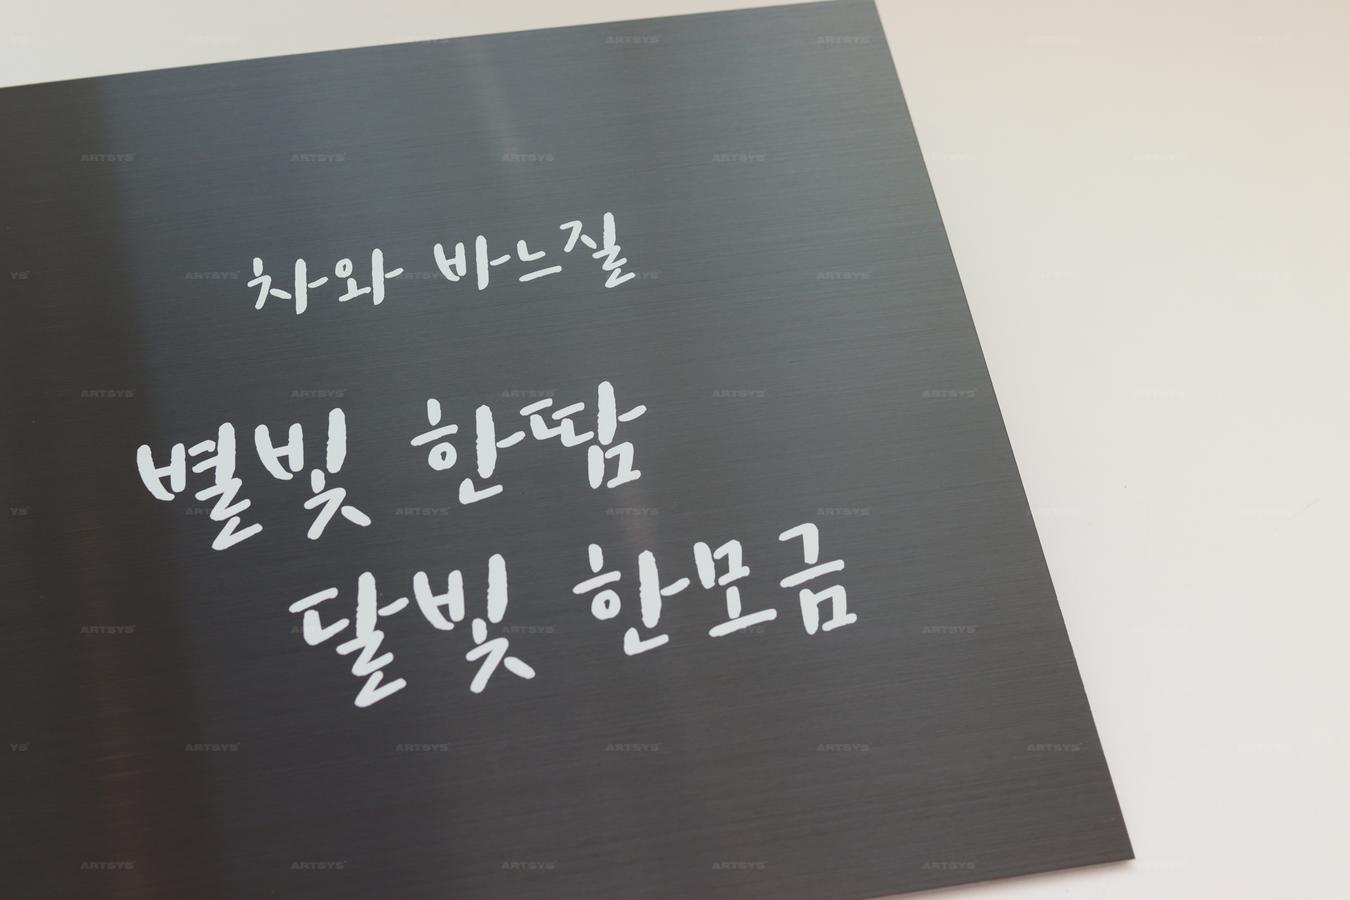 차와 바느질
별빛 한땀
달빛 한모금
ARTSYS